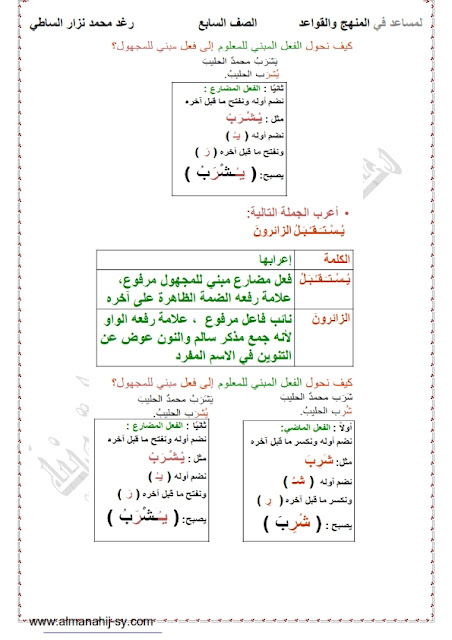 لمساعد في المنهج والقواعد الصف السابع رغد محمد نزار الساطي
كيف نحول الفعل المبني للمعلوم إلى فعل مبني للمجهول؟
يَشْرَبُ محمدٌ الحليبَ
يُشْرَب الحليبُ.
ثانيًا : الفعل المضارع :
نضم أوله ونفتح ما قبل آخره
مثل : يُـشْرَبُ
نضم أوله ( يُـ )
ونفتح ما قبل آخره ( رَ )
يصبح: ( يُـشْرَبُ )
• أعرب الجملة التالية:
يُـسْـتَـقْـبَـلُ الزائرونَ
الكلمة إعرابها
يُـسْـتَـقْـبَـلُ فعل مضارع مبني للمجهول مرفوع، علامة رفعه الضمة الظاهرة على آخره
الزائرونَ نائب فاعل مرفوع ، علامة رفعه الواو لأنه جمع مذكر سالم والنون عوض عن التنوين في الاسم المفرد
كيف نحول الفعل المبني للمعلوم إلى فعل مبني للمجهول؟
شَرِبَ محمدٌ الحليبَ
شُرِب الحليبُ.
أولاً : الفعل الماضي:
نضم أوله ونكسر ما قبل آخره
مثل: شَرِبَ
نضم أوله ( شُـ )
ونكسر ما قبل آخره ( رِ )
يصبح: ( شُرِبَ )
يَشْرَبُ محمدٌ الحليبَ
يُشْرَب الحليبُ.
ثانيًا : الفعل المضارع :
نضم أوله ونفتح ما قبل آخره
مثل : يُـشْرَبُ
نضم أوله ( يُـ )
ونفتح ما قبل آخره ( رَ )
يصبح: ( يُـشْرَبُ )
www.almanahij-sy.com